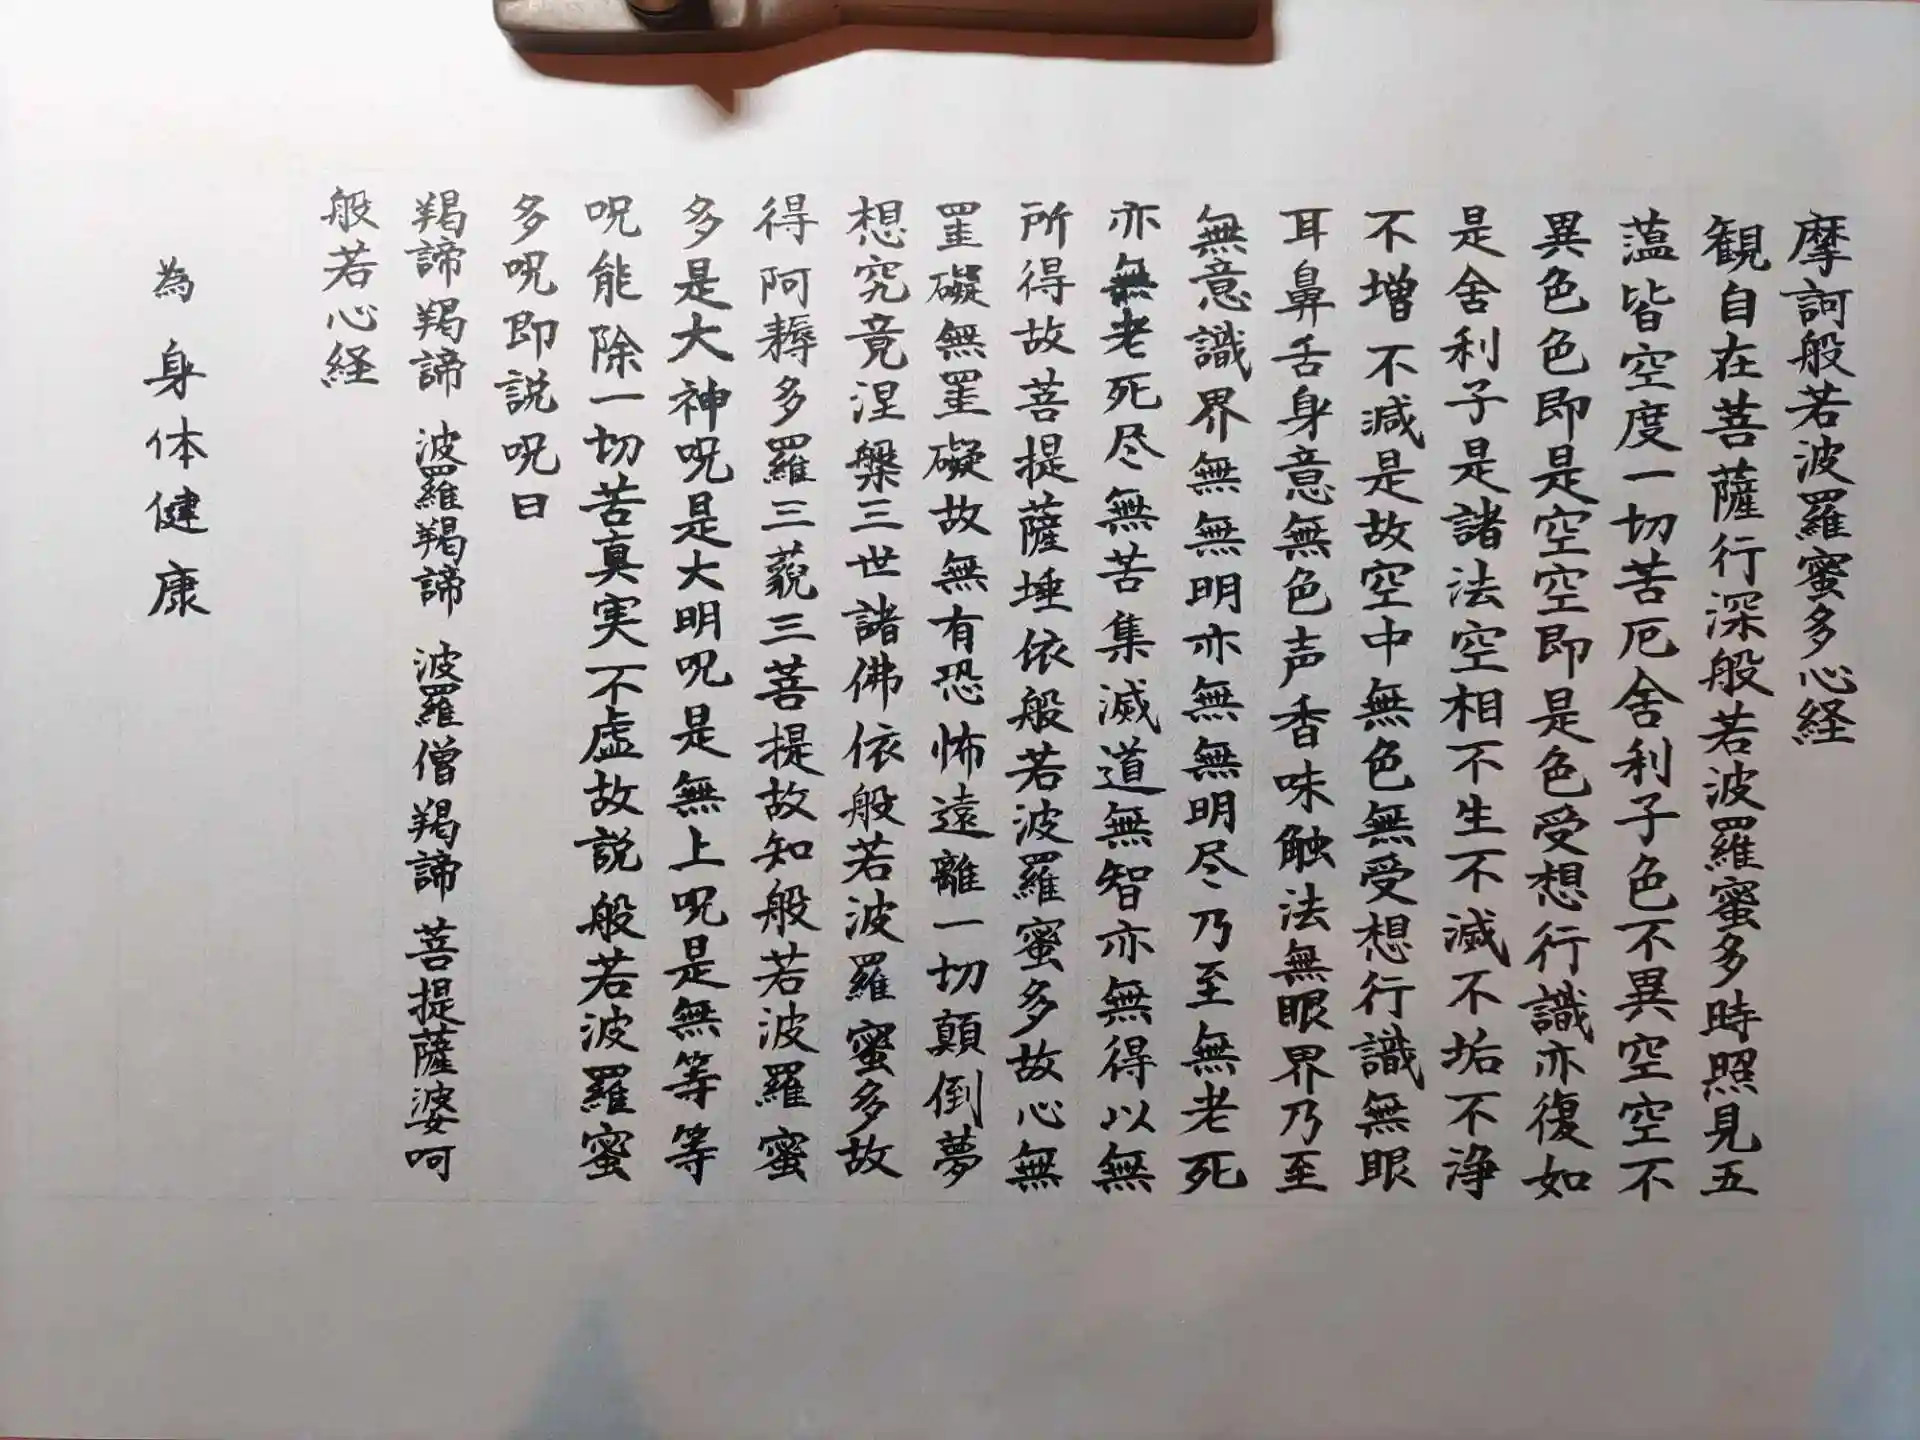 摩訶般若波羅蜜多心経
観自在菩薩行深般若波羅蜜多時照見五
薀皆空度一切苦厄舎利子色不異空空不
異色色即是空空即是色受想行識亦復如
是舎利子是諸法空相不生不滅不垢不浄
不増不減是故空中無色無受想行識無眼
耳鼻舌身意無色声香味触法無眼界乃至
無意識界無無明亦無無明尽乃至無老死
亦無老死尽無苦集滅道無智亦無得以無
所得故菩提薩埵依般若波羅蜜多故心無
罣礙無罣礙故無有恐怖遠離一切顛倒夢
想究竟涅槃三世諸佛依般若波羅蜜多故
得阿耨多羅三藐三菩提故知般若波羅蜜
多是大神呪是大明呪是無上呪是無等等
呪能除一切苦真実不虚故説般若波羅蜜
多呪即説呪曰
羯諦羯諦 波羅羯諦 波羅僧羯諦 菩提薩婆呵
般若心経
為身体健康